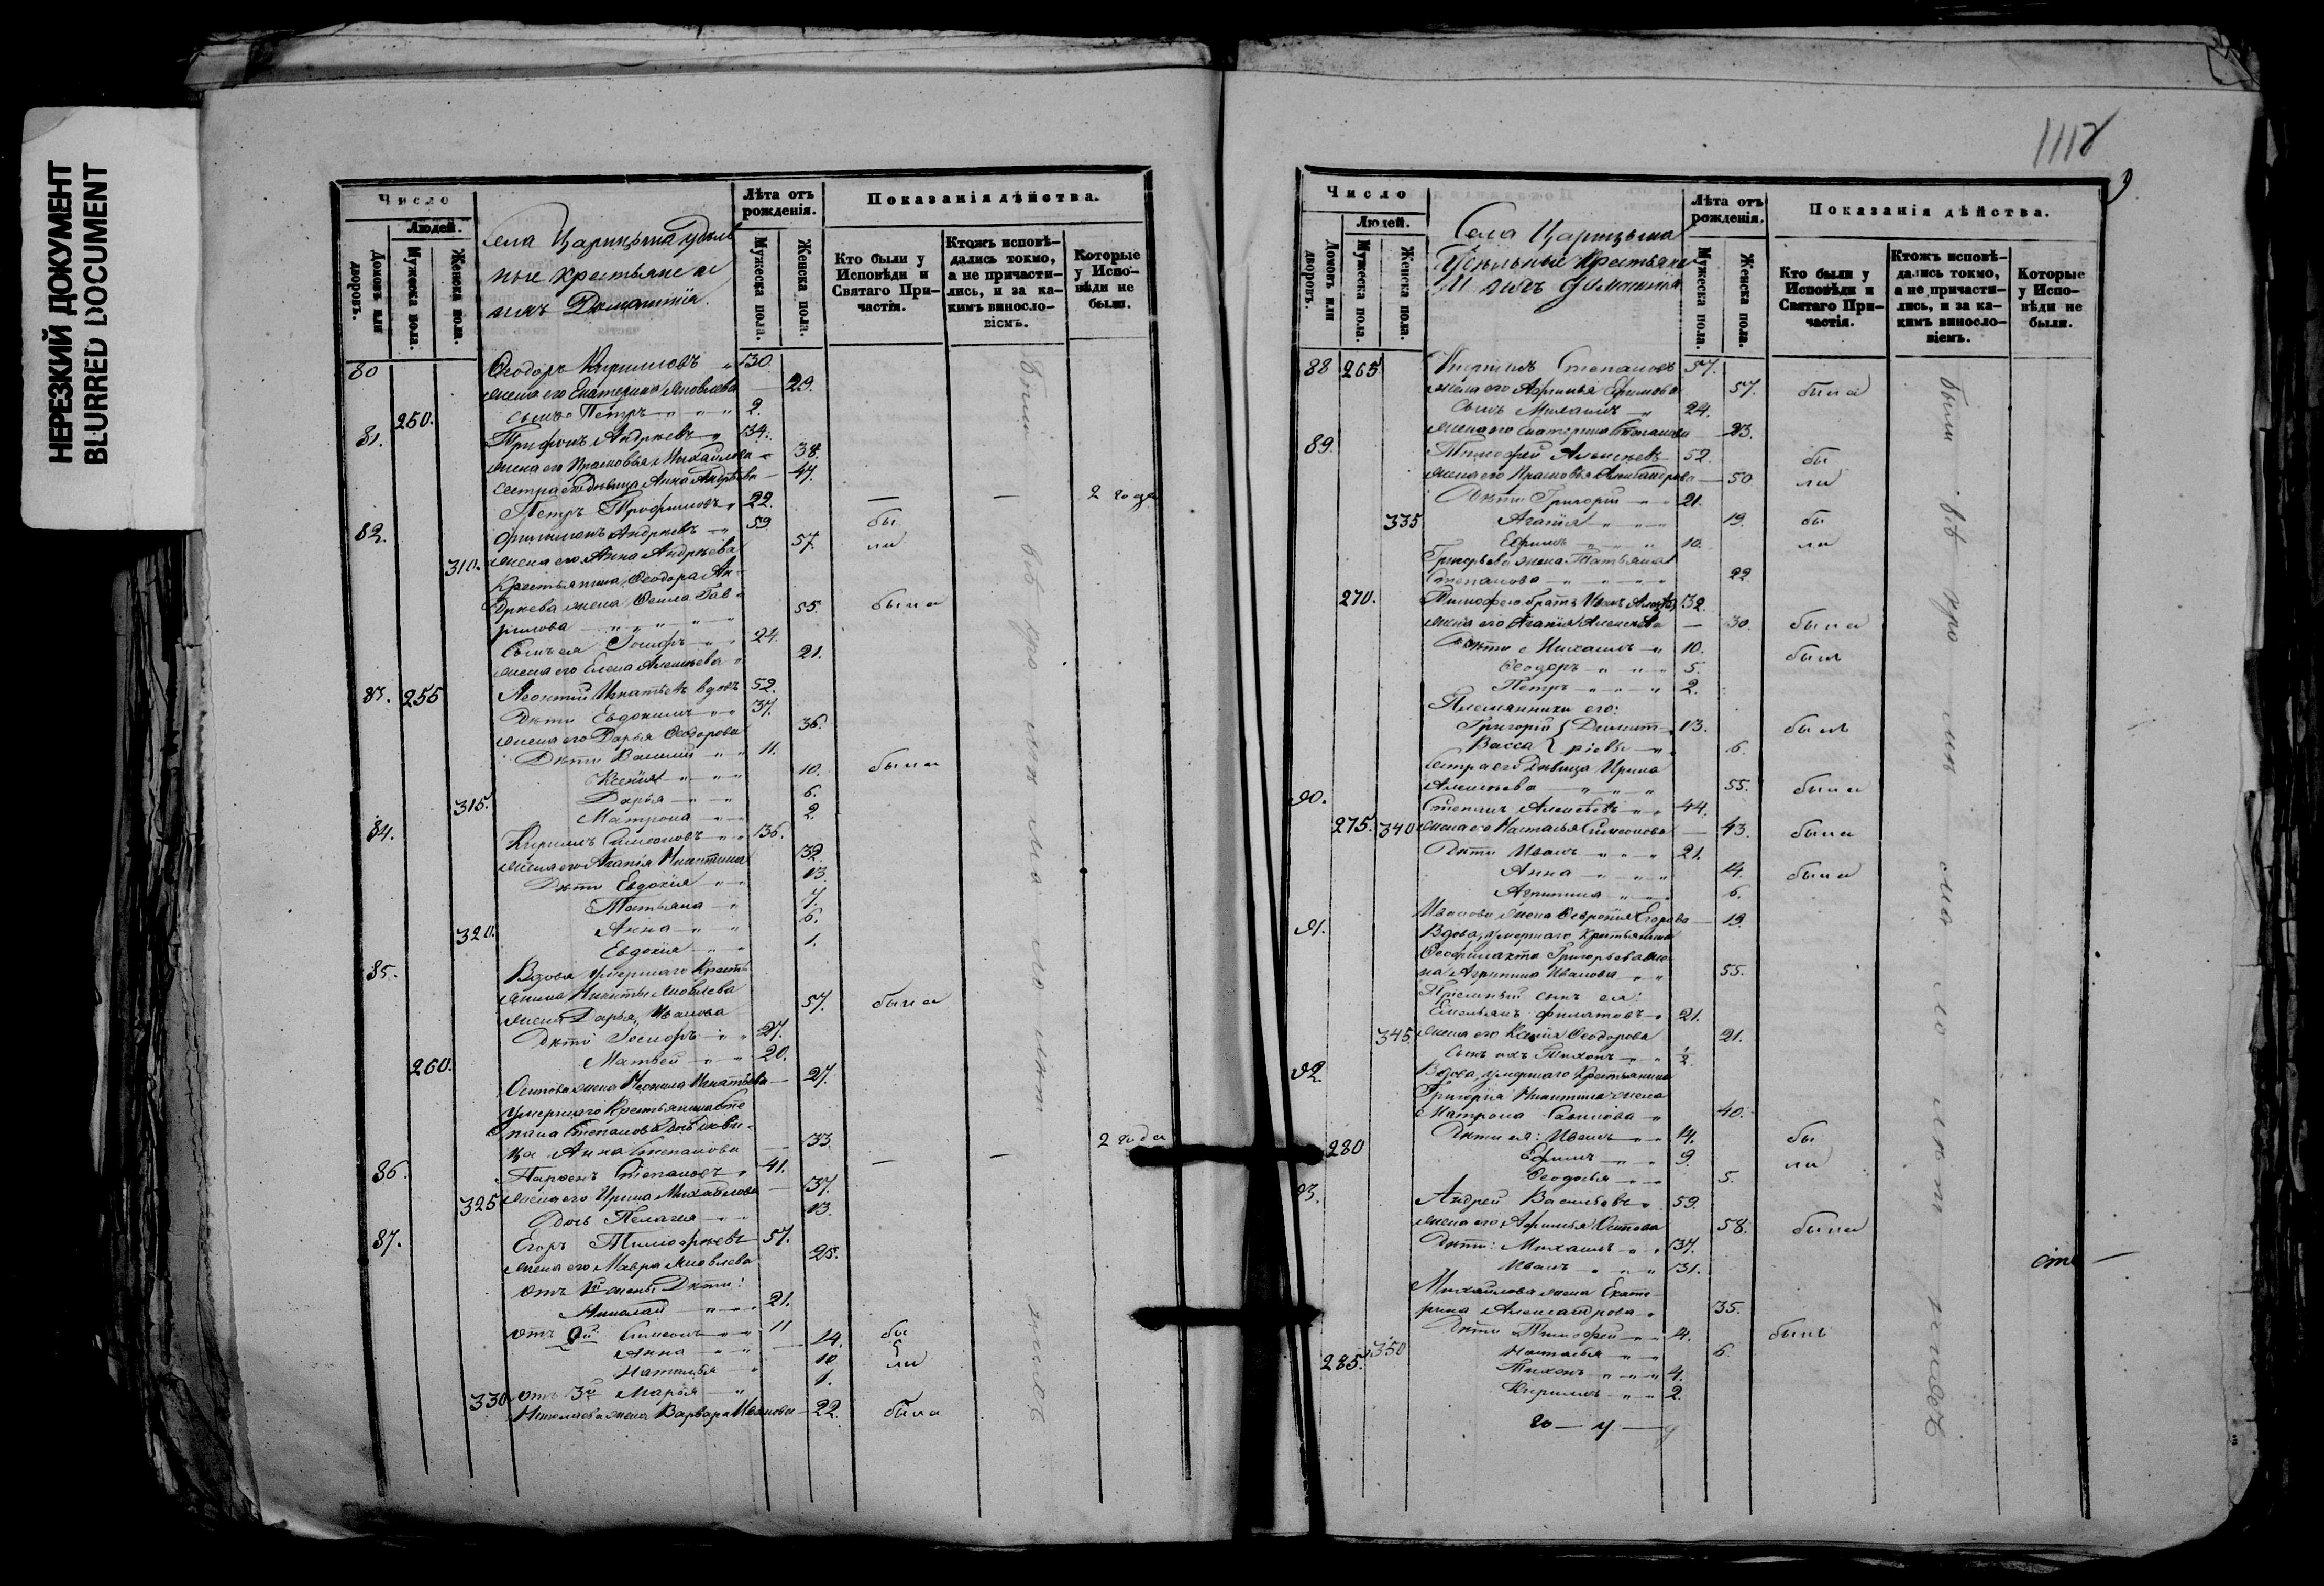 НЕРЕЗКИЙ ДОКУМЕНТ
BLURRED DOCUMENT
Число
Людей.
Домовъ или дворовъ.
Мужеска пола.
Женска пола.
Села Царицына Удѣль
ные крестьяне и
ихъ Домашнія.
Лѣта отъ рожденія.
Мужеска пола.
Женска пола.
Показанія дѣйства.
Кто были у Исповѣди и Святаго Причастія.
Ктожъ исповѣдались токмо, а не причастились, и за какимъ винословіемъ.
Которые у Исповѣди не были.
80 Ѳеодоръ Кирилловъ 30.
жена его Екатерина Яковлева 29.
250. сынъ Петръ 2.
81. Трифонъ Андреевъ 34.
жена его Прасковья Михайлова 38.
сестра его Дѣвица Анна Андреева 47.
Петръ Трофимовъ 22. — — 2 года
82. Филиппъ Андреевъ 59 бы
310. жена его Анна Андреева 57. ли
Крестьянина Ѳеодора Ан-
дреева жена Ѳекла Гав-
рилова 55. была
Сынъ ея Іосифъ 24.
жена его Елена Алексѣева 21.
83. 255 Леонтій Игнатьевъ вдовъ 52.
Дѣти Евдокимъ 37.
жена его Дарья Ѳеодорова 36.
Дѣти Василій 11.
Ксенія 10. были
315. Дарья 6.
Матрона 2.
84. Кириллъ Симеоновъ 36.
жена его Агафія Никитина 32.
Дѣти Евдокія 13.
Татьяна 7.
320. Анна 6.
Евдокія 1.
85. Вдова умершаго Кресть
янина Никиты Яковлева
жена Дарья Иванова 57. была
Дѣти Іосифъ 27.
260. Матвей 20.
Осипова жена Неонила Игнатьева 27.
Умершаго Крестьянина Сте
пана Степанова Дочь Дѣви-
ца Анна Степанова 33. — — 2 года
86. Парѳенъ Степановъ 41.
325 жена его Ирина Михайлова 37.
Дочь Пелагея 13.
87. Егоръ Тимофеевъ 57.
жена его Мавра Яковлева 25.
отъ 1й жены Дѣти:
Николай 21.
отъ 2й Симеонъ 11
Анна 14. бы
Наталья 10. ли
330 отъ 3й Марья 1.
Николаева жена Варвара Иванова 22. была
1112
Число
Людей.
Домовъ или дворовъ.
Мужеска пола.
Женска пола.
Села Царицына
Удѣльные Крестьяне
И ихъ Домашнія
Лѣта отъ рожденія.
Мужеска пола.
Женска пола.
Показанія дѣйства.
Кто были у Исповѣди и Святаго Причастія.
Ктожъ исповѣдались токмо, а не причастились, и за какимъ винословіемъ.
Которые у Исповѣди не были.
88 265 Кириллъ Степановъ 57.
жена его Афимья Ефимова 57. была
Сынъ Михаилъ 24.
жена его Екатерина Степанова 23.
89. Тимофей Алексеевъ 52. бы
жена его Прасковья Александрова 50 ли
Дѣти Григорій 21.
335 Агафія 19. бы
Ефимъ 10. ли
Григорьева жена Татьяна
Степанова 22
270. Тимофея братъ Иванъ 32.
жена его Агафія Алексеева — 30. была
Дѣти Михаилъ 10. былъ
Ѳеодоръ 5.
Петръ 2.
Племянники его:
Григорій } Димит- 13. былъ
Васса } ріевы 6.
сестра его Дѣвица Ирина
Алексеева 55. была
90. Степанъ Алексеевъ 44.
275. 340 жена его Наталья Симеонова 43. была
Дѣти Иванъ 21.
Анна 14. была
Агрипина 6.
Иванова жена Егорова 19.
91. Вдова умершаго Крестьянина
Ѳеофилакта Григорьева же
на Агрипина Иванова 55.
Пріемный сынъ ея:
Емельянъ Филатовъ 21.
345. жена его Ксенія Ѳеодорова 21.
Сынъ ихъ Тихонъ ½
92. Вдова умершаго Крестьянина
Григорія Никитина жена
Матрона Савинова 40.
Дѣти ея: Иванъ 14. бы
280 Ефимъ 9. ли
Ѳеодосья 5.
93. Андрей Васильевъ 59.
жена его Афимья Осипова 58. была
Дѣти: Михаилъ 37.
Иванъ 31.
Михайлова жена Екате-
рина Александрова 35.
Дѣти Тимофей 14. былъ
350 Наталья 6.
285. Тихонъ 4.
Кириллъ 2.